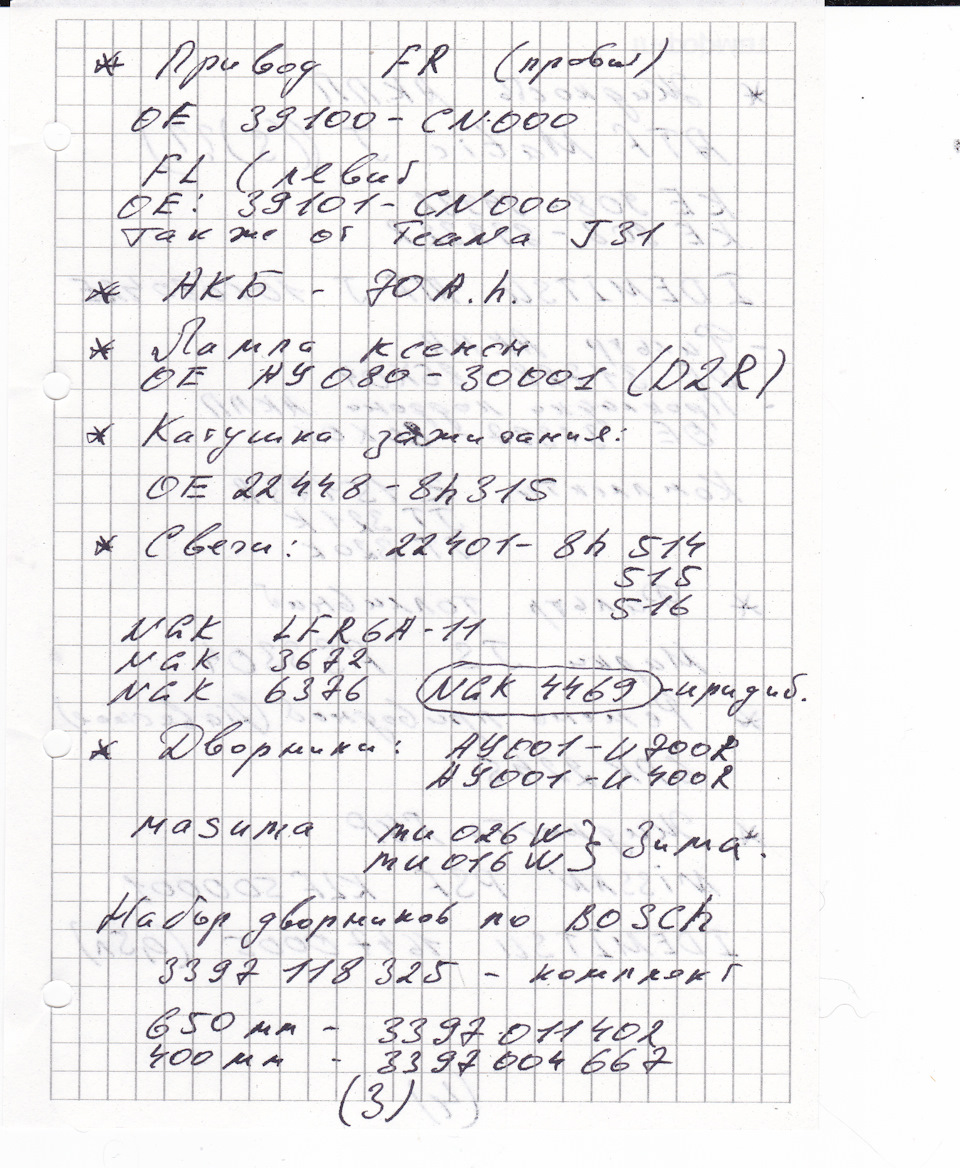 * Привод FR (правый)
OE 39100-CN000
FL (левый
OE: 39101-CN000
также от Teana J31
* АКБ - 70 A.h.
* Лампа ксенон
OE AY080-30001 (D2R)
* Катушка зажигания:
OE 22448-8h315
* Свечи: 22401-8h514
515
516
NGK LFR6A-11
NGK 3672
NGK 6376 NGK 4469 -иридий.
* Дворники: AY001-U700R
AY001-U400R
Masuma mu026W } Зима*.
mu016W }
Набор дворников по BOSCh
3397 118 325 - комплект
650 мм - 3397 011 402
400 мм - 3397 004 667
(3)